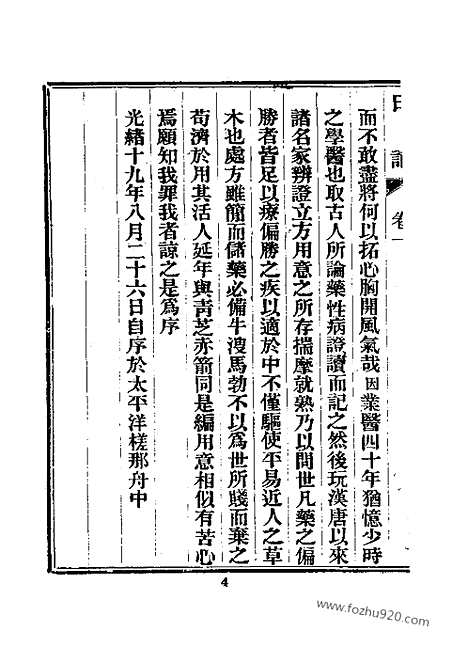 而不敢盡將何以拓心胸開風氣哉因業醫四十年猶憶少時
之學醫也取古人所論藥性病證讀而記之然後玩漢唐以來
諸名家辨證立方用意之所存揣摩就熟乃以問世凡藥之偏
勝者皆足以療偏勝之疾以適於中不僅驅使平易近人之草
木也處方雖簡而儲藥必備牛溲馬勃不以為世所賤而棄之
苟濟於用其活人延年與靑芝赤箭同是編用意相似有苦心
焉願知我罪我者諒之是為序
光緒十九年八月二十六日自序於太平洋槎那舟中
卷一
4
www.fozhu920.com